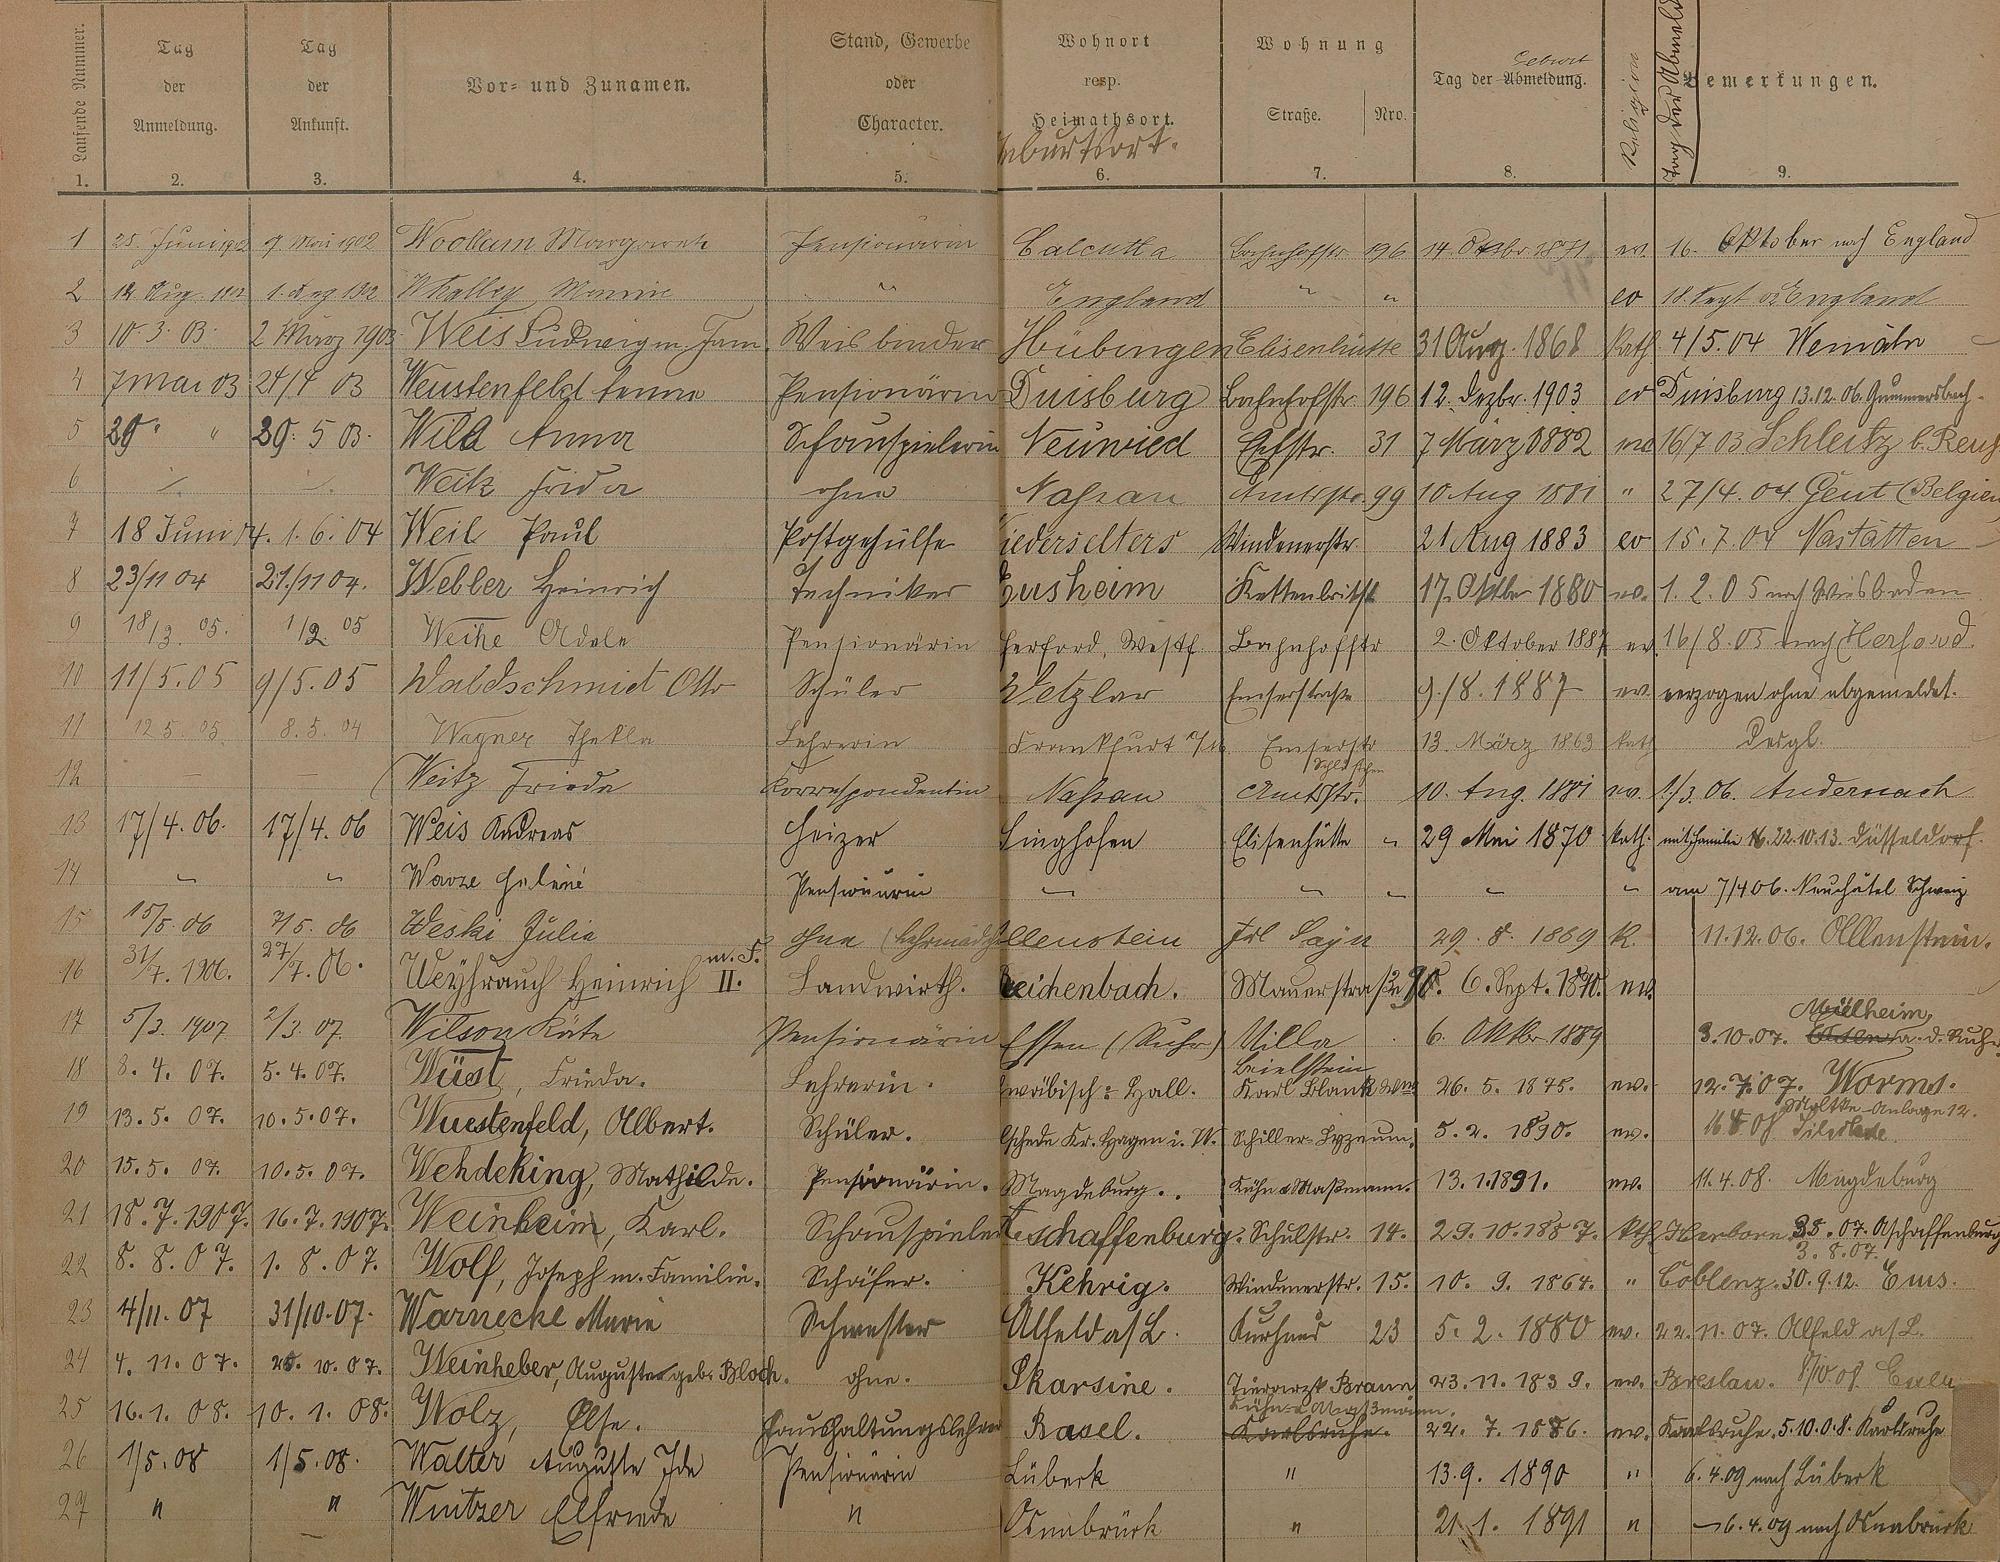 Laufende Nummer. Tag der Anmeldung. Tag der Ankunft. Vor- und Zunamen. Stand, Gewerbe oder Character. Wohnort resp. Heimathsort. Wohnung Straße. Nro. Tag der Abmeldung. Geburt Religion Tag der Abmeld Bemerkungen.
1. 2. 3. 4. 5. 6. 7. 8. 9.
1 25. Juni 1902 9 Mai 1902 Woollam Margareth Pensionärin Calcutta Bahnhofstr 196 14. Oktbr 1871 ev. 16. Oktober nach England
2 1. Aug 1902 Whalley " England " " ev 18. Sept 02 England
3 10. 3. 03. 2 März 1903 Weis Ludwig m. Fam. Weisbinder Hübingen Elisenhütte 31 Aug. 1868 Kath 4/5. 04
4 7 Mai 03 24/4 03 Pensionärin Duisburg Bahnhofstr. 196 12. Dezbr. 1903 ev Duisburg 13.12.06. Gummersbach
5 29 " " 29. 5 03. Wild Anna Schauspielerin Neuwied 31 7 März 1882 16/7 03 Schleitz b. Reuß
6 Weitz Frida ohne Nassau Amtsstr. 99 10 Aug 1881 " 27/4. 04 Gent (Belgien
7 18 Juni 04. 1. 6. 04 Weil Paul Postgehülfe iederselters Windenerstr 21 Aug 1883 ev 15. 7. 04 Nastätten
8 23/11 04 21./11 04. Webler Heinrich Techniker Eusheim Kettenbrückstr 17. Oktbr 1880 ev. 1. 2. 05 nach Wiesbaden
9 18/3. 05. 1/2. 05 Weihe Adele Pensionärin Herford, Westf. Bahnhofstr 2. Oktober 1887 ev. 16/8. 05 nach Herford.
10 11/5. 05 9/5. 05 Waldschmidt Otto Schüler Wetzlar Emserstraße 9./8. 1887 ev. verzogen ohne abgemeldet.
11 12 5. 05. 8. 5. 04 Wagner Thekla Lehrerin Frankfurt a/M. Emserstr 13. März 1863 kath Desgl.
12 — — Weitz Frieda Korrespondentin Nassau Amtsstr. 10. Aug. 1881 ev. 1/3. 06. Andernach
13 17/4. 06. 17/4. 06 Weis Andreas Heizer Singhofen Elisenhütte " 29 Mai 1870 kath. mit Familie 22.10.13. Düsseldorf.
14 " " Warze Helene Pensionärin " " " " " am 7/4 06. Neuchâtel Schweiz
15 15/5. 06 7/5. 06 Weski Julie ohne llenstein 29. 8. 1889 K. 11.12.06. Allenstein.
16 31/7. 1906. 27/7. 06. Weyhrauch Heinrich II. m. F. Landwirth. eichenbach. Mauerstraße 6. Sept. 1870. ev.
17 5/3. 1907 2/3. 07. Wilson Käte Pensionärin Essen (Ruhr) Villa Beielstein 6. Oktbr 1889 3.10.07. Mülheim a. d. Ruhr
18 8. 4. 07. 5. 4. 07. Wüst, Frieda. Lehrerin. wäbisch-Hall. Karl Blank Wwe 26. 5. 1875. ev. 12. 7. 07. Worms.
Moltke-Anlage 12.
19 13. 5. 07. 10. 5. 07. Wuestenfeld, Albert. Schüler. lschede Kr. Hagen i. W. Schiller-Lyzeum. 5. 2. 1890. ev. Silschede
20 15. 5. 07. 10. 5. 07. Wehdeking, Mathilde. Pensionärin. Magdeburg. Kühn & Maßmann. 13. 1. 1891. ev. 11. 4. 08. Magdeburg
21 18. 7. 1907. 16. 7. 1907. Weinheim, Karl. Schauspieler schaffenburg. Schulstr. 14. 29. 10. 1887. kth. Herborn. Aschaffenburg
3. 8. 07.
22 8. 8. 07. 1. 8. 07. Wolf, Joseph m. Familie. Schäfer. Kehrig. Windenerstr. 15. 10. 9. 1864. " Coblenz. 30. 9. 12. Ems.
23 4/11. 07 31/10. 07. Warnecke Marie Schwester Alfeld a/L. Kurhaus 23 5. 2. 1880 ev. 22. 11. 07. Alfeld a/L.
24 4. 11. 07. 28. 10. 07. Weinheber, Auguste geb. Bloch. ohne. Skarsine. Tierarzt Braun 23. 11. 1839. ev. Breslau. 8/10. 08.
Kühn & Maßmann.
25 16. 1. 08. 10. 1. 08. Wolz, Else. Haushaltungslehrer Basel. Karlsruhe. 22. 7. 1886. ev. Karlsruhe. 5. 10. 08. Karlsruhe
26 1/5. 08 1/5. 08. Walter Auguste Ida Pensionärin Lübeck " 13. 9. 1890 " 6. 4. 09 nach Lübeck
27 " " Wuitzer Elfriede " Osnabrück " 21. 1. 1891 " 6. 4. 09 nach Osnabrück